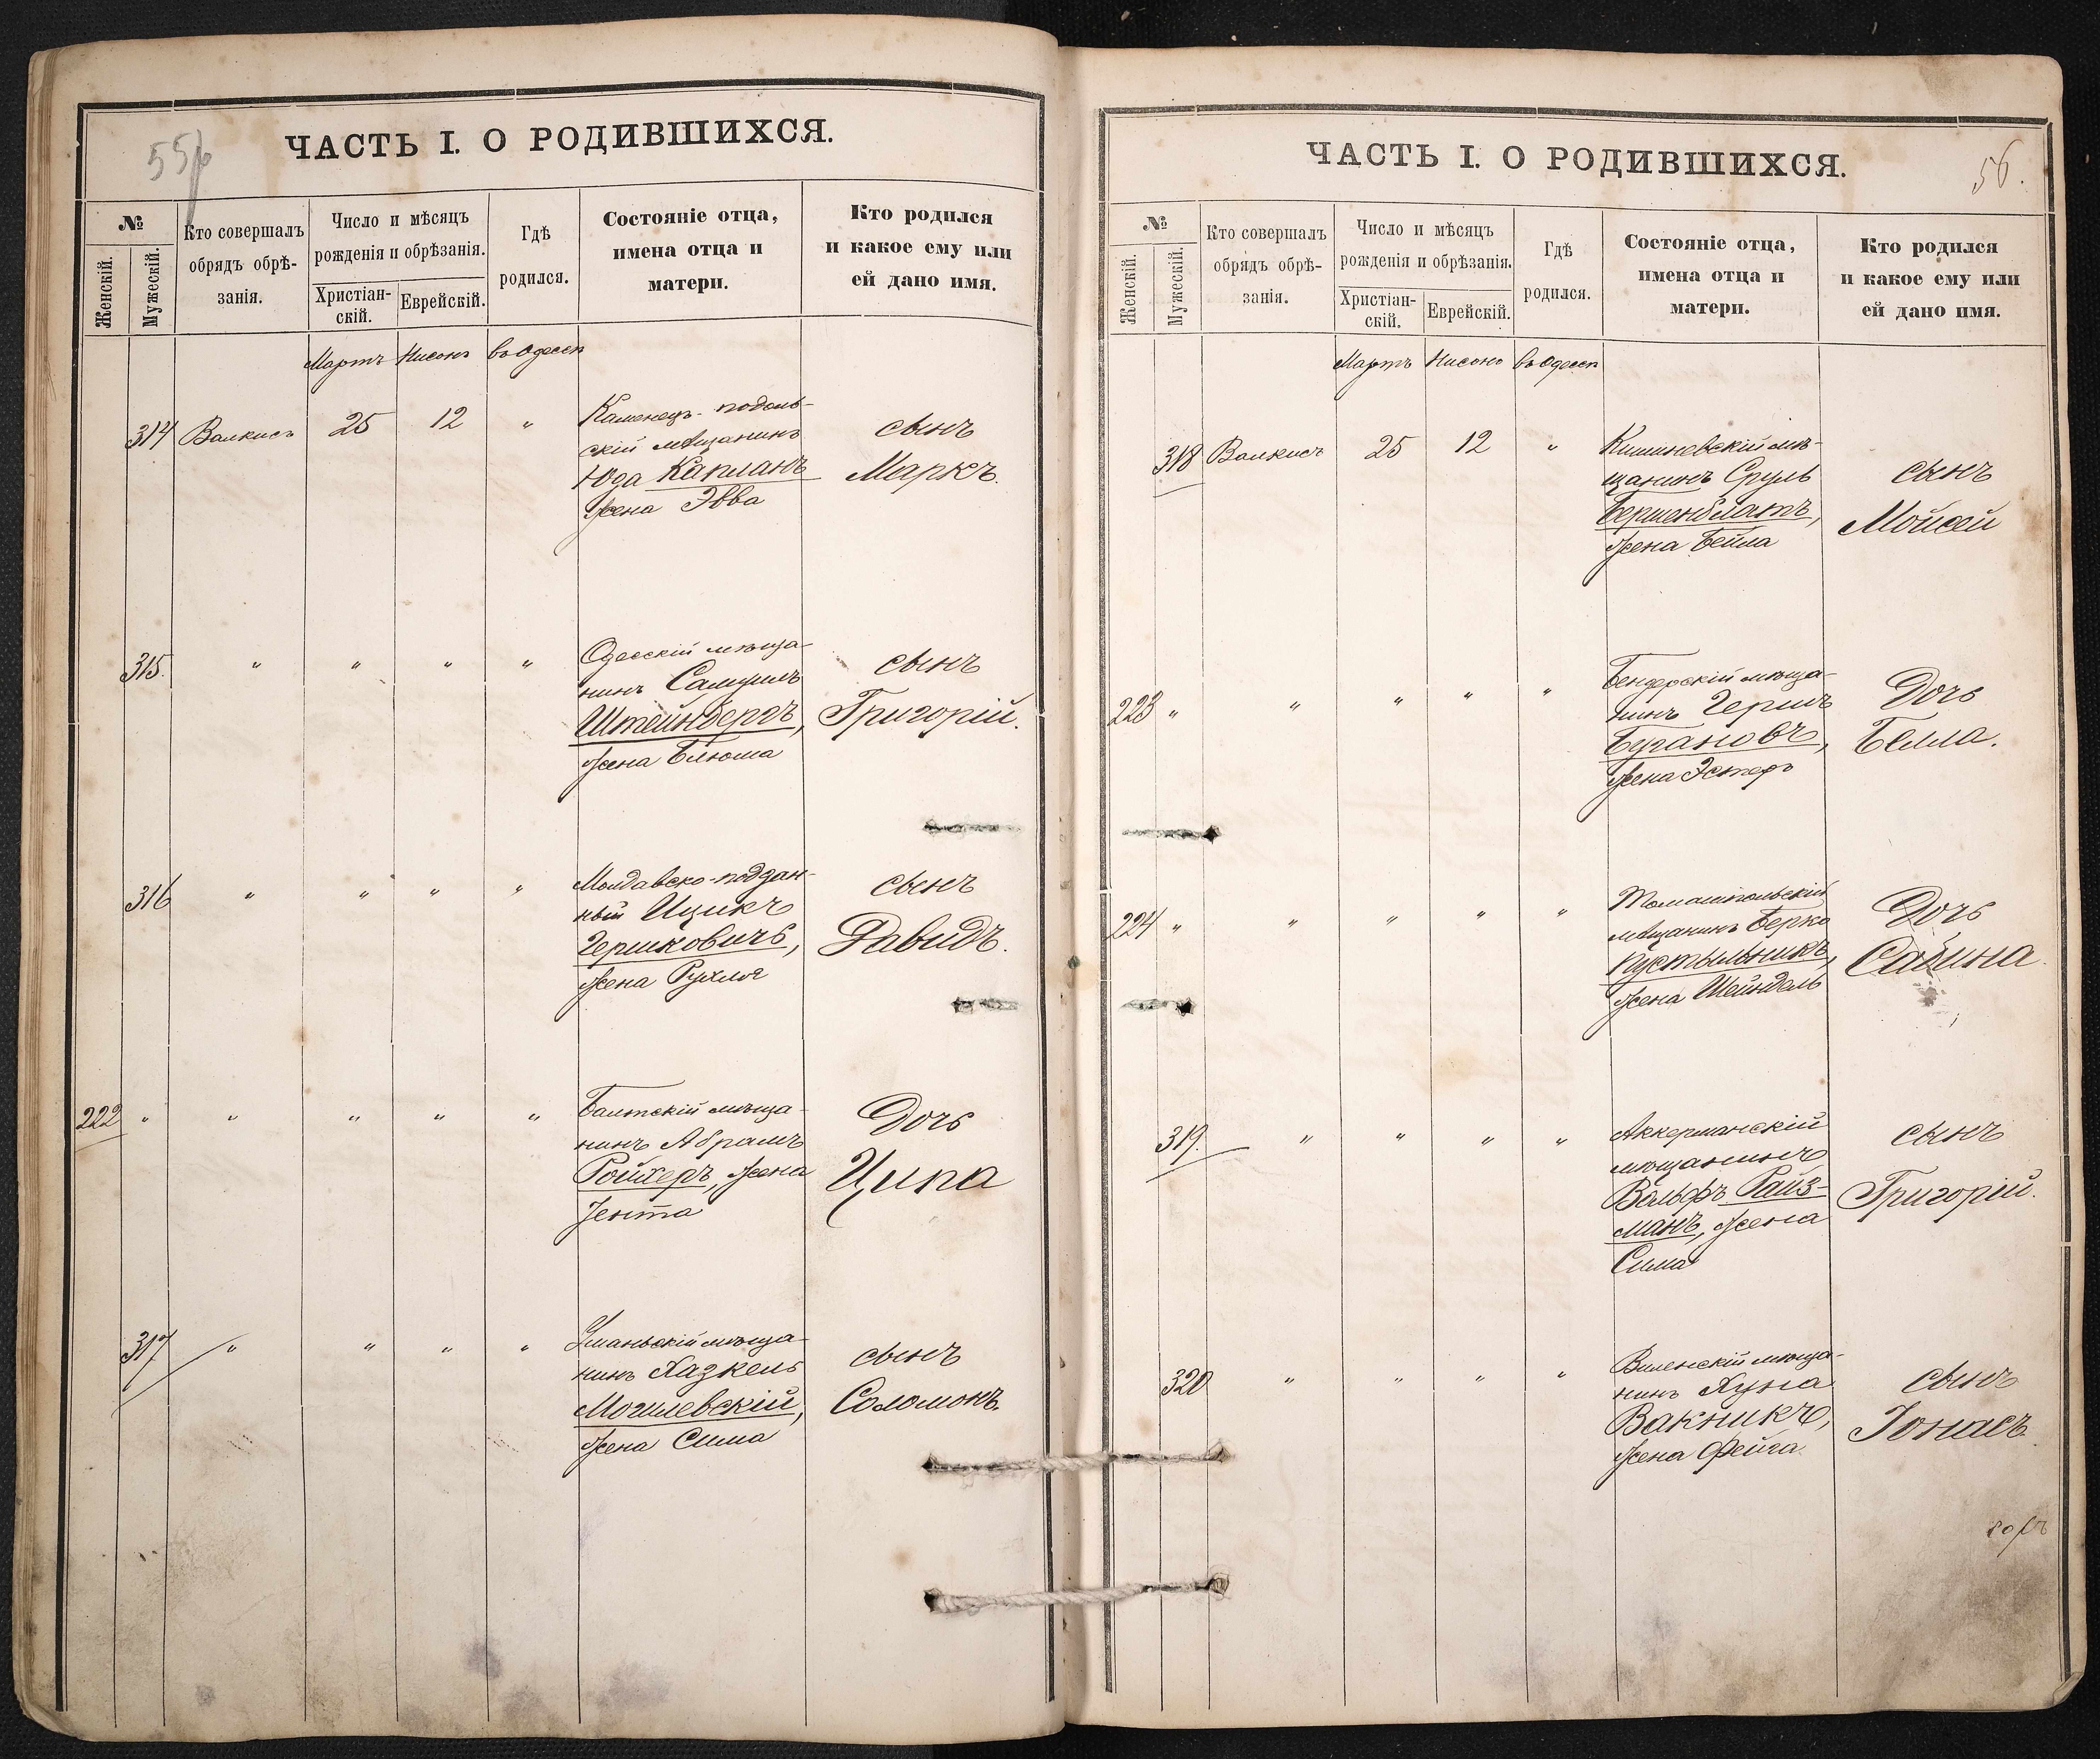 55
ЧАСТЬ I. О РОДИВШИХСЯ.
№
Женскій.
Мужескій.
Кто совершалъ
обрядъ обрѣ-
занія.
Число и мѣсяцъ
рожденія и обрѣзанія.
Христіан-
скій.
Еврейскій.
Гдѣ
родился.
Состояніе отца,
имена отца и
матери.
Кто родился
и какое ему или
ей дано имя.
Мартъ Нисонъ въ Одессѣ
314 Валкисъ 25 12 "
Каменецъ-подоль-
скій мѣщанинъ
Юда Капланъ
жена Эвва
сынъ
Маркъ.
315. " " " "
Одесскій мѣща-
нинъ Самуилъ
Штейнбергъ,
жена Блюма
сынъ
Григорій.
316 " " " "
Молдавско-поддан-
ный Ицикъ
Гершковичъ,
жена Рухля
сынъ
Давидъ.
222 " " " " "
Балтскій мѣща-
нинъ Абрамъ
Ройхеръ, жена
Іента
Дочь
Ципа
317 " " " "
Уманьскій мѣща-
нинъ Хазкель
Могилевскій,
жена Сима
сынъ
Соломонъ.
56.
ЧАСТЬ I. О РОДИВШИХСЯ.
№
Женскій.
Мужескій.
Кто совершалъ
обрядъ обрѣ-
занія.
Число и мѣсяцъ
рожденія и обрѣзанія.
Христіан-
скій.
Еврейскій.
Гдѣ
родился.
Состояніе отца,
имена отца и
матери.
Кто родился
и какое ему или
ей дано имя.
Мартъ Нисонъ въ Одессѣ
318 Валкисъ 25 12 "
Кишиневскій мѣ-
щанинъ Сруль
Бершенблатъ,
жена Бейла
сынъ
Мойсей
223 " " " " "
Бендерскій мѣща-
нинъ Гершъ
Бугановъ,
жена Эстеръ
Дочь
Белла.
224 " " " " "
Томашпольскій
мѣщанинъ Берко
Пустыльникъ,
жена Шейндель
Дочь
Сабина.
319. " " " "
Аккерманскій
мѣщанинъ
Вольфъ Райз-
манъ, жена
Сима
сынъ
Григорій.
320 " " " "
Виленскій мѣща-
нинъ Хуна
Вакникъ,
жена Фейга
сынъ
Іонасъ.